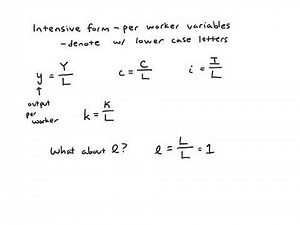 Intensive form - per worker variables
- denote w/ lower case letters
y = Y/L    c = C/L    i = I/L
↑
output per worker
k = K/L
What about l?   l = L/L = 1